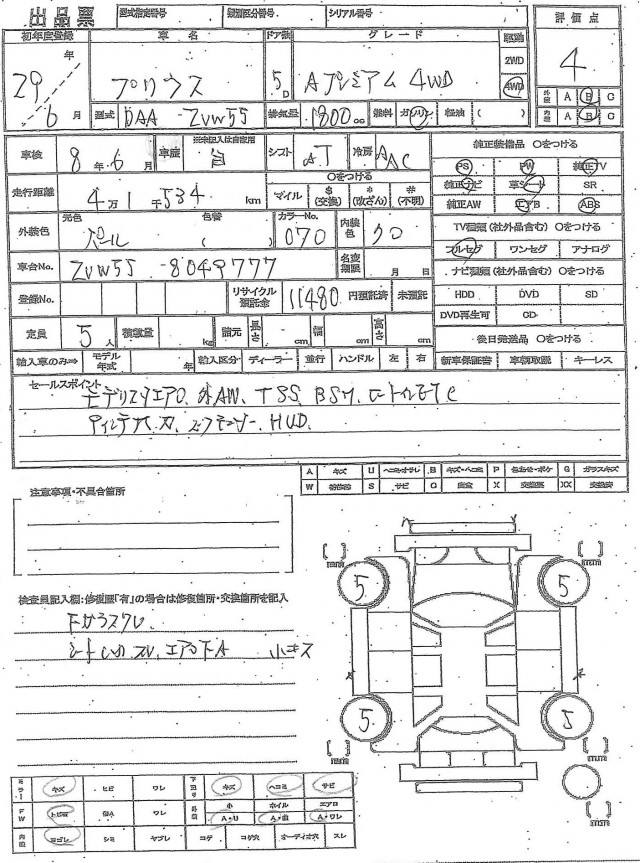 出品票 型式指定番号 類別区分番号 シリアル番号 評価点
初年度登録 車名 ドア数 グレード 駆動
29年 プリウス 5D Aプレミアム 4WD 2WD 4WD 4
6月 型式 DAA - ZVW55 排気量 1800cc 燃料 ガソリン 軽油 ( )
外装 A B C
内装 A B C
車検 8年6月 車歴 ※未記入は自家用 自 シフト AT 冷房 AAC
純正装備品 ○をつける
PS PW 純正TV
走行距離 4万1千534km ○をつける マイル $(交換) *(改ざん) #(不明)
純正ナビ 革シート SR
純正AW エアB ABS
外装色 元色 パール 色替 ( ) カラーNo. 070 内装色 クロ
TV種類(社外品含む) ○をつける
フルセグ ワンセグ アナログ
車台No. ZVW55 - 8049777 名変期限 月 日
ナビ種類(社外品含む) ○をつける
登録No. リサイクル預託金 11480円預託済 未預託
HDD DVD SD
DVD再生可 CD
定員 5人 積載量 kg 諸元 長さ cm 幅 cm 高さ cm
後日発送品 ○をつける
輸入車のみ⇒ モデル年式 年 輸入区分 ディーラー 並行 ハンドル 左 右
新車保証書 車輌取説 キーレス
セールスポイント
モデリスタエアロ、外AW、TSS、BSM、
HUD
A キズ U ヘコミ B キズ・ヘコミ P G ガラスキズ
W S サビ C 腐食 X 交換要 XX 交換済
注意事項・不具合箇所
mm mm
5 5
検査員記入欄:修復歴「有」の場合は修復箇所・交換箇所を記入
Fガラスワレ
エアロFA 小キズ
5 5
mm mm
mm
ミラー キズ ヒビ ワレ 下回り キズ ヘコミ サビ
FW 飛石 傷A ワレ 外装 小A・U ホイルA・曲 エアロA・ワレ
内装 ヨゴレ シミ ヤブレ コゲ コゲ穴 オーディオ穴 スレ